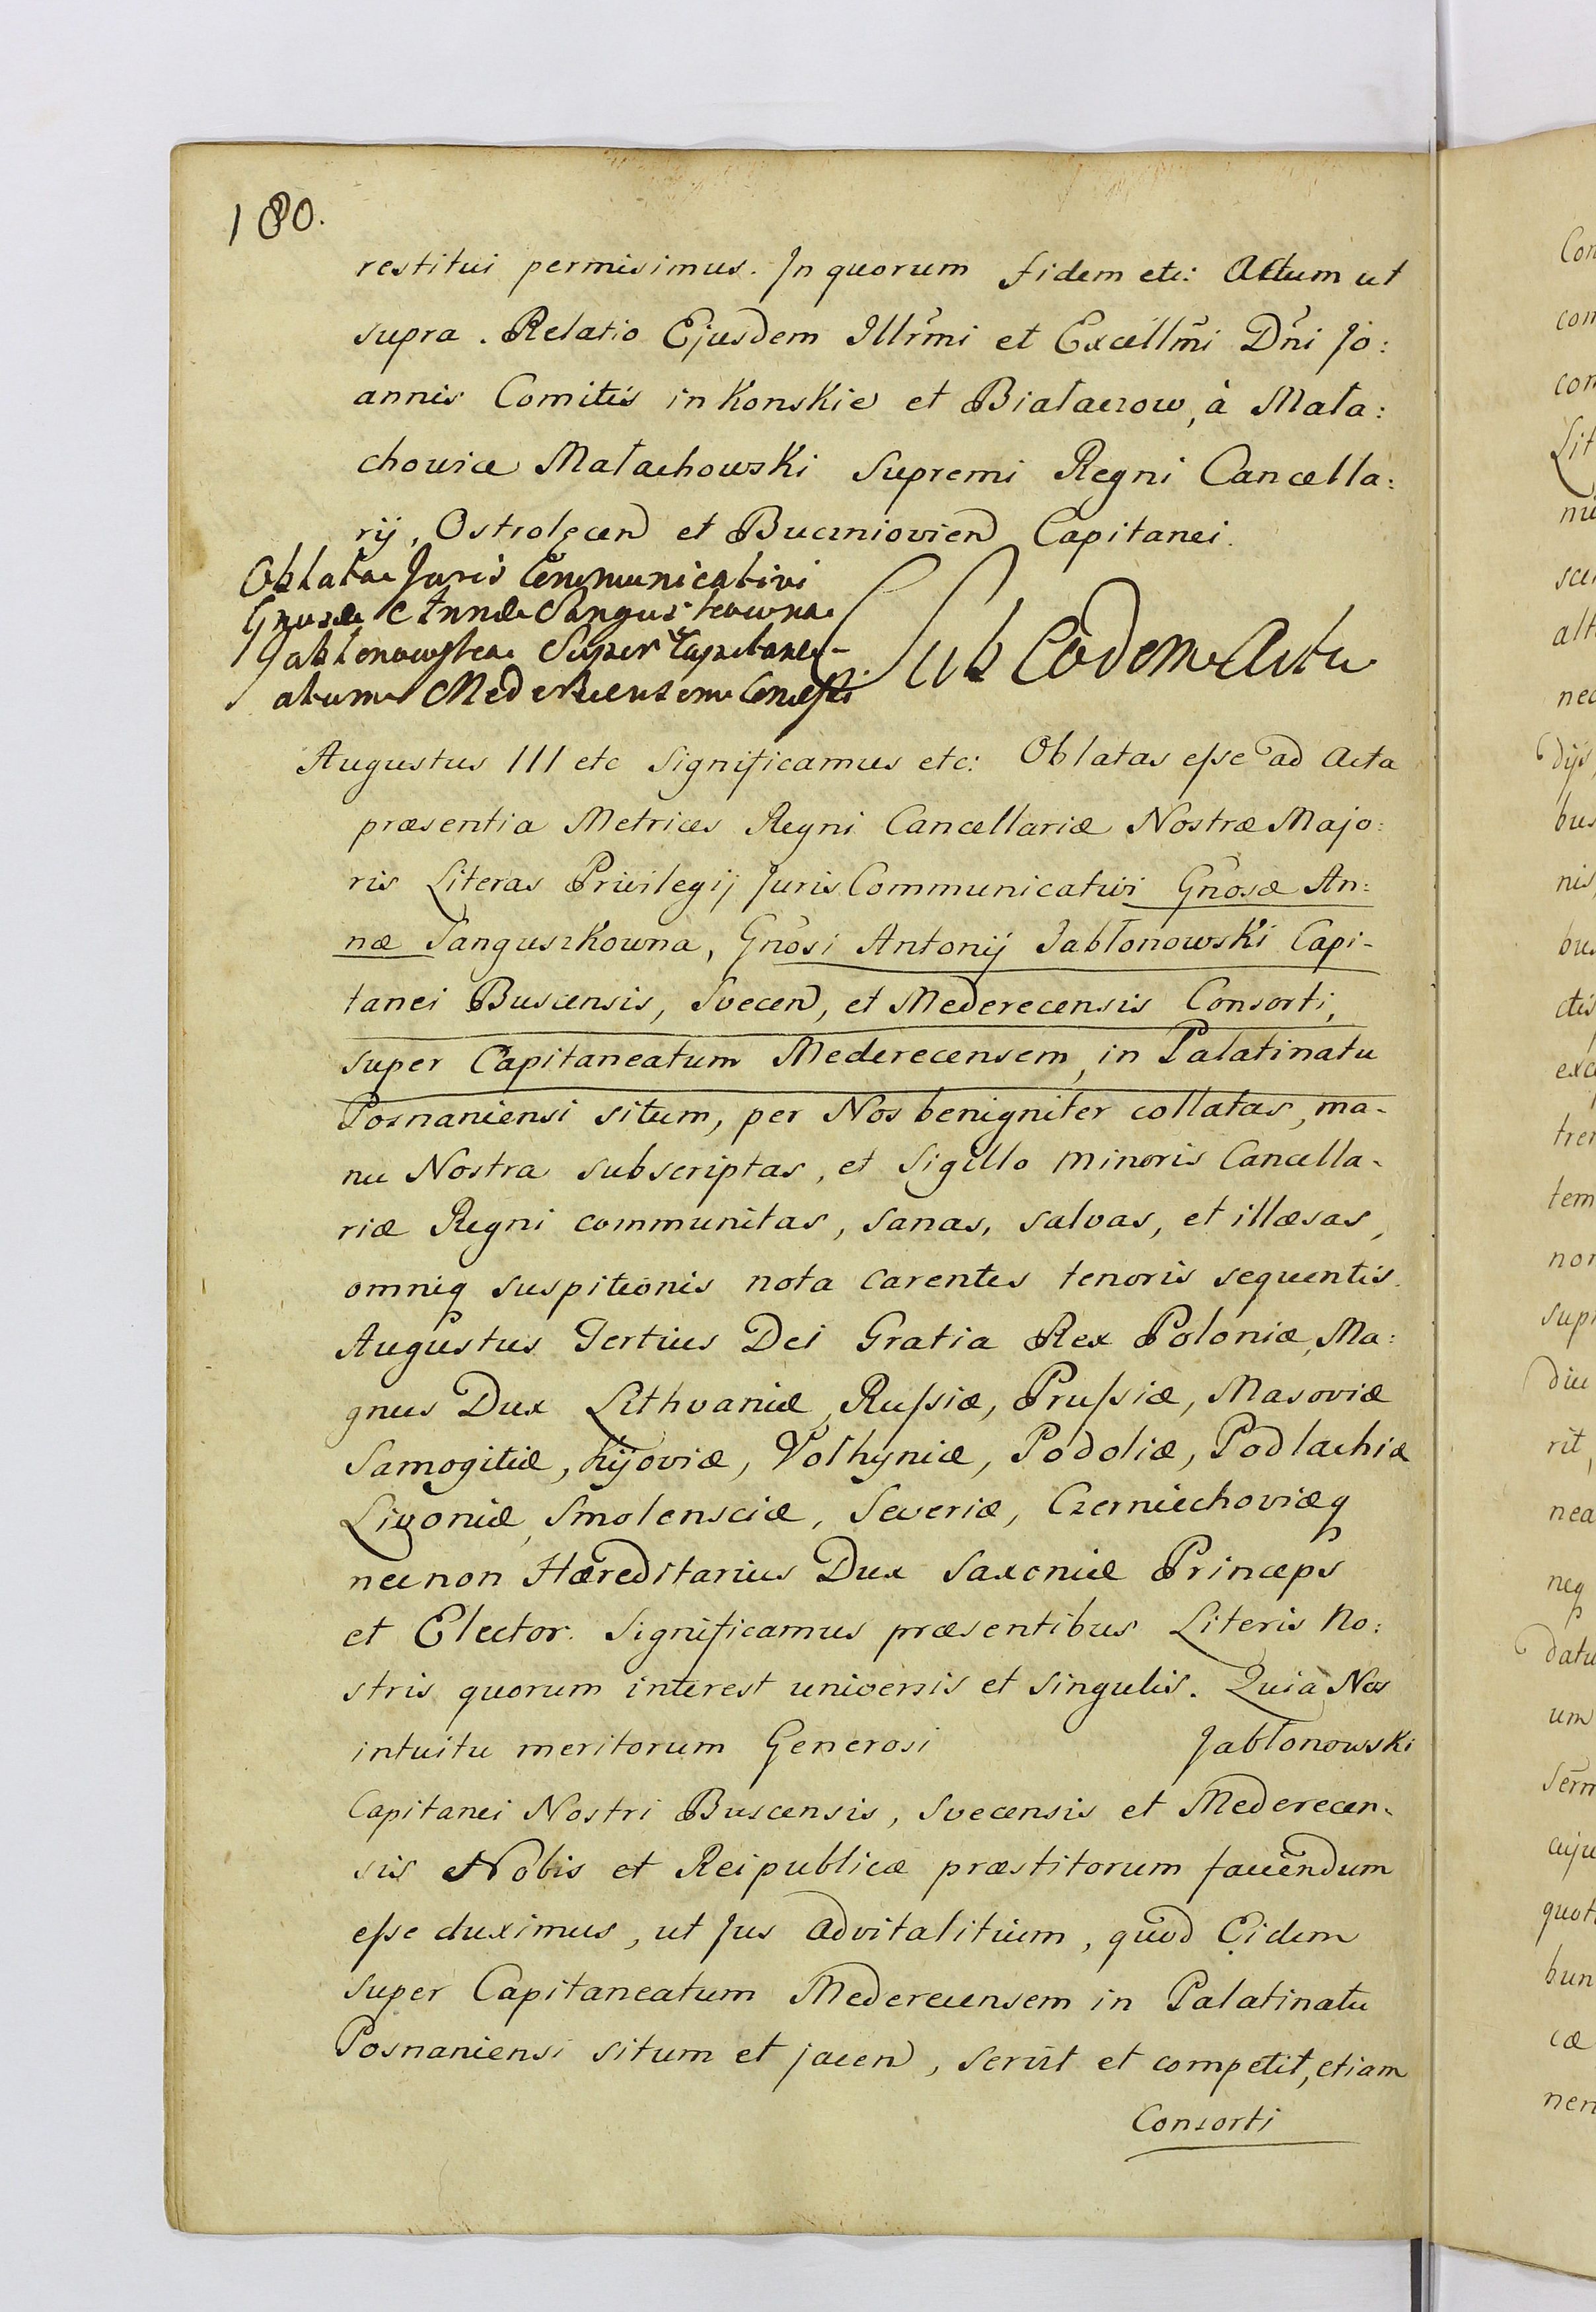 180.
restitui permisimus. In quorum fidem etc: Actum ut
supra. Relatio Ejusdem Illr̃mi et Excellm̃i Dñi Jo:
annis Comitis in Konskie et Białaczow, à Mała:
chowice Małachowski Supremi Regni Cancella:
rij, Ostrolęcen et Buczniovien Capitanei.
Oblata Juris Communicativi
Gnosæ Annæ Sanguszkowna
Jabłonowska Super Capitane-
atum Mederecensem Concessi
Sub Eodem Actu
Augustus III etc Significamus etc: Oblatas esse ad Acta
præsentia Metrices Regni Cancellariæ Nostræ Majo:
ris Literas Privilegij Juris Communicativi Gñosæ An:
næ Sanguszkowna, Gñosi Antonij Jabłonowski Capi-
tanei Buscensis, Svecen, et Mederecensis Consorti,
super Capitaneatum Mederecensem, in Palatinatu
Posnaniensi situm, per Nos benigniter collatas, ma-
nu Nostra subscriptas, et Sigillo minoris Cancella-
riæ Regni communitas, sanas, salvas, et illæsas,
omniq suspitionis nota carentes tenoris sequentis.
Augustus Tertius Dei Gratia Rex Poloniæ, Ma:
gnus Dux Lithvaniæ, Russiæ, Prussiæ, Masoviæ
Samogitiæ, Kijoviæ, Volhyniæ, Podoliæ, Podlachiæ
Livoniæ, Smolensciæ, Severiæ, Czerniechoviæq
necnon Hæreditarius Dux Saxoniæ Princeps
et Elector. Significamus præsentibus Literis No:
stris quorum interest universis et singulis. Quia Nos
intuitu meritorum Generosi Jabłonowski
Capitanei Nostri Buscensis, Svecensis et Mederecen-
sis Nobis et Reipublicæ præstitorum favendum
esse duximus, ut Jus advitalitium, quod Eidem
super Capitaneatum Mederecensem in Palatinatu
Posnaniensi situm et jacen, servit et competit, etiam
Consorti